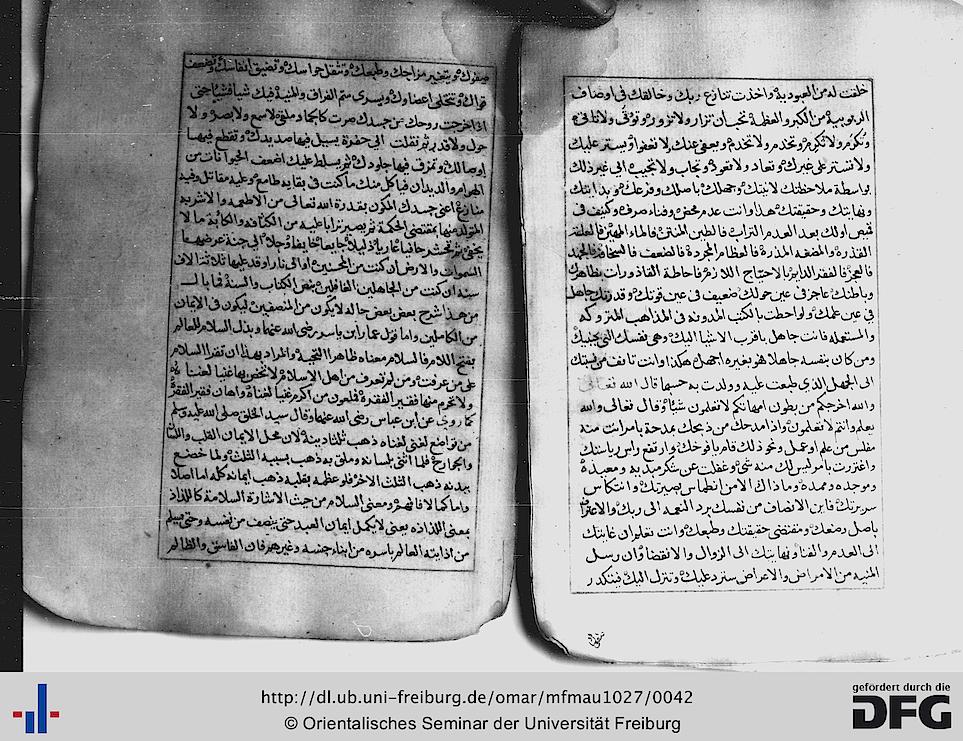 خلقت له من العبودية واخذت تنازع ربك وخالقك في اوصاف
الربوبية من الكبر والعظمة تحب ان تزار ولا تزور وتؤتى ولا تاتي
وتكرم ولا تكرم وتخدم ولا تخدم ويعفى عنك ولا تعفوا ويستر عليك
ولا تستر على غيرك وتعاد ولا تعود وتجاب ولا تجيب الى غير ذلك
بواسطة ملاحظتك لانيتك وجهلك باصلك وفرعك وبدايتك
ونهايتك وحقيقتك هذا وانت عدم محض وفناء صرف وكيف
اولك بعد العدم التراب فالطين المنتن فالماء المهين فالعلقة
القذرة والمضغة المذرة فالعظام المجردة فالضعف
فالعجز فالفقر الدايم بالاحتياج اللازم فاحاطة القاذورات بظاهرك
وباطنك عاجز في عين حولك ضعيف في عين قوتك وقدرتك جاهل
في عين علمك ولو احطت بالكتب المدونة في المذاهب المتروكة
والمستعملة فانت جاهل باقرب الاشيا اليك وهي نفسك التي بجنبيك
ومن كان بنفسه جاهلا فهو بغيره اجهل هكذا وانت تانف من نسبتك
الى الجهل الذي طبعت عليه وولدت به حسبما قال الله تعالى
والله اخرجكم من بطون امهاتكم لا تعلمون شيأ وقال تعالى والله
يعلم وانتم لا تعلمون واذا مدحك من ذبحك مدحة بامر انت منه
مفلس من علم او عمل ونحو ذلك قام يافوخك وارتفع راس رياستك
واغتررت بامر ليس لك منه شيء وغفلت عن شكر مبديه ومعيده
وموجده وممده وما ذاك الا من انطماس بصيرتك وانتكاس
سريرتك فاين الانصاف من نفسك برد النعمة الى ربك والاعتراف
باصل وضعك ومقتضى حقيقتك وطبعك وانت تعلم ان غايتك
الى العدم والفنا ونهايتك الى الزوال والانقضا وان رسل
المنية من الامراض والاعراض سترد عليك وتنزل اليك فيتكدر
صفوك ويتغير مزاجك وطبعك وتثقل حواسك وتضيق انفاسك وتضعف
قواك وتتخلى اعضاوك ويسري ستم الفراق والمنية فيك شيا فشيا حتى
اذا خرجت روحك من جسدك صرت كالجماد ملقى لا سمع ولا بصر ولا
حول ولا قدرة ثم نقلت الى حفرة يسيل فيها صديدك وتقطع فيها
اوصالك وتمزق فيها جلودك ثم يسلط عليك اضعف الحيوانات من
الهوام والديدان فياكل منك ما كنت في بقايه طامع وعليه مقاتل وفيه
منازع اعني جسدك المكون بقدرة الله تعالى من الاطعمة والاشربة
المتولد منها بمقتضى الحكمة ثم يصير ترابا عليه من الكثافة والكآبة ما لا
يخفى ثم تحشر حافيا عاريا ذليلا جايعا خايفا وجلا الى جنة عرضها
السموات والارض ان كنت من المحسنين او الى نار اوقد عليها ثلاثة الاف
سنة ان كنت من الجاهلين الغافلين بنص الكتاب والسنة
من هذا شرح بعض بعض حاله لا يكون من المنصفين ليكون في الايمان
من الكاملين واما قول عمار ابن ياسر رضي الله عنهما وبذل السلام للعالم
بفتح اللام فالسلام معناه ظاهرا التحية والمراد بهذا ان تقرا السلام
على من عرفت ومن لم تعرف من اهل الاسلام ولا تخص بها غنيا لغناه
ولا تحرم منها فقير الفقره فملعون من اكرم غنيا لغناه واهان فقير الفقره
كما روي عن ابن عباس رضي الله عنهما وقال سيد الخلق صلى الله عليه وسلم
من تواضع لغني لغناه ذهب ثلثا دينه لان محل الايمان القلب واللسان
والجوارح فلما اثنى بلسانه وملق به ذهب بسببه الثلث ولما خضع
ببدنه ذهب الثلث الاخر فلو عظمه بقلبه ذهب ايمانه كله اما اصلا
واما كمالا فافهم ومعنى السلام من حيث الاشارة السلامة كاللذاذ
بمعنى اللذاذه يعني لا يكمل ايمان العبد حتى ينصف من نفسه وحتى يسلم
من اذايته العالم باسره من ابناء جنسه وغيرهم فان الفاسق والظالم
http://dl.ub.uni-freiburg.de/omar/mfmau1027/0042
© Orientalisches Seminar der Universität Freiburg
gefördert durch die
DFG